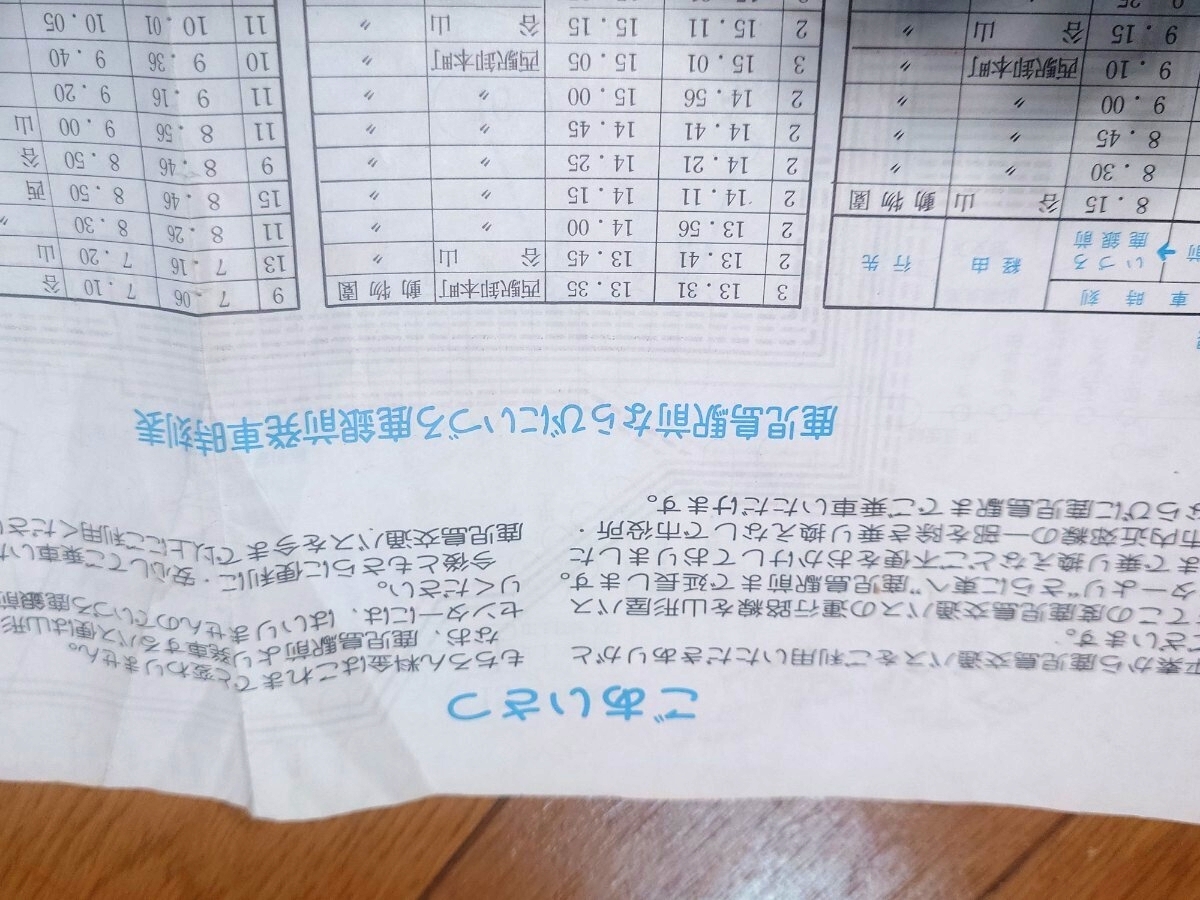 ごあいさつ
平素から鹿児島交通バスをご利用いただきありがと
ざいます。
てこの度鹿児島交通バスの運行路線を山形屋バス
ターより“さらに東へ”鹿児島駅前まで延長します。
まで乗り換えなどご不便をおかけしておりました
市内近郊線の一部を除き乗り換えなしで市役所・
ならびに鹿児島駅までご乗車いただけます。
もちろん料金はこれまでと変わりません。
なお、鹿児島駅前より発車するバス便は山形
センターには、はいりませんのでいづろ鹿銀前
りください。
今後ともさらに便利に・安心してご乗車いた
鹿児島交通バスを今まで以上にご利用くださ
鹿児島駅前ならびにいづろ鹿銀前発車時刻表
車 時 刻 経由 行先
前 → いづろ鹿銀前
8.15 谷山 動物園
8.30 〃 〃
8.45 〃 〃
9.00 〃 〃
9.10 西駅卸本町 〃
9.15 谷山 〃
3 13.31 13.35 西駅卸本町 動物園
2 13.41 13.45 谷山 〃
2 13.56 14.00 〃 〃
2 14.11 14.15 〃 〃
2 14.21 14.25 〃 〃
2 14.41 14.45 〃 〃
2 14.56 15.00 〃 〃
3 15.01 15.05 西駅卸本町 〃
2 15.11 15.15 谷山 〃
9 7.06 7.10 谷
13 7.16 7.20 山
11 8.26 8.30 〃
15 8.46 8.50 西
9 8.46 8.50 谷
11 8.56 9.00 山
11 9.16 9.20
10 9.36 9.40
11 10.01 10.05